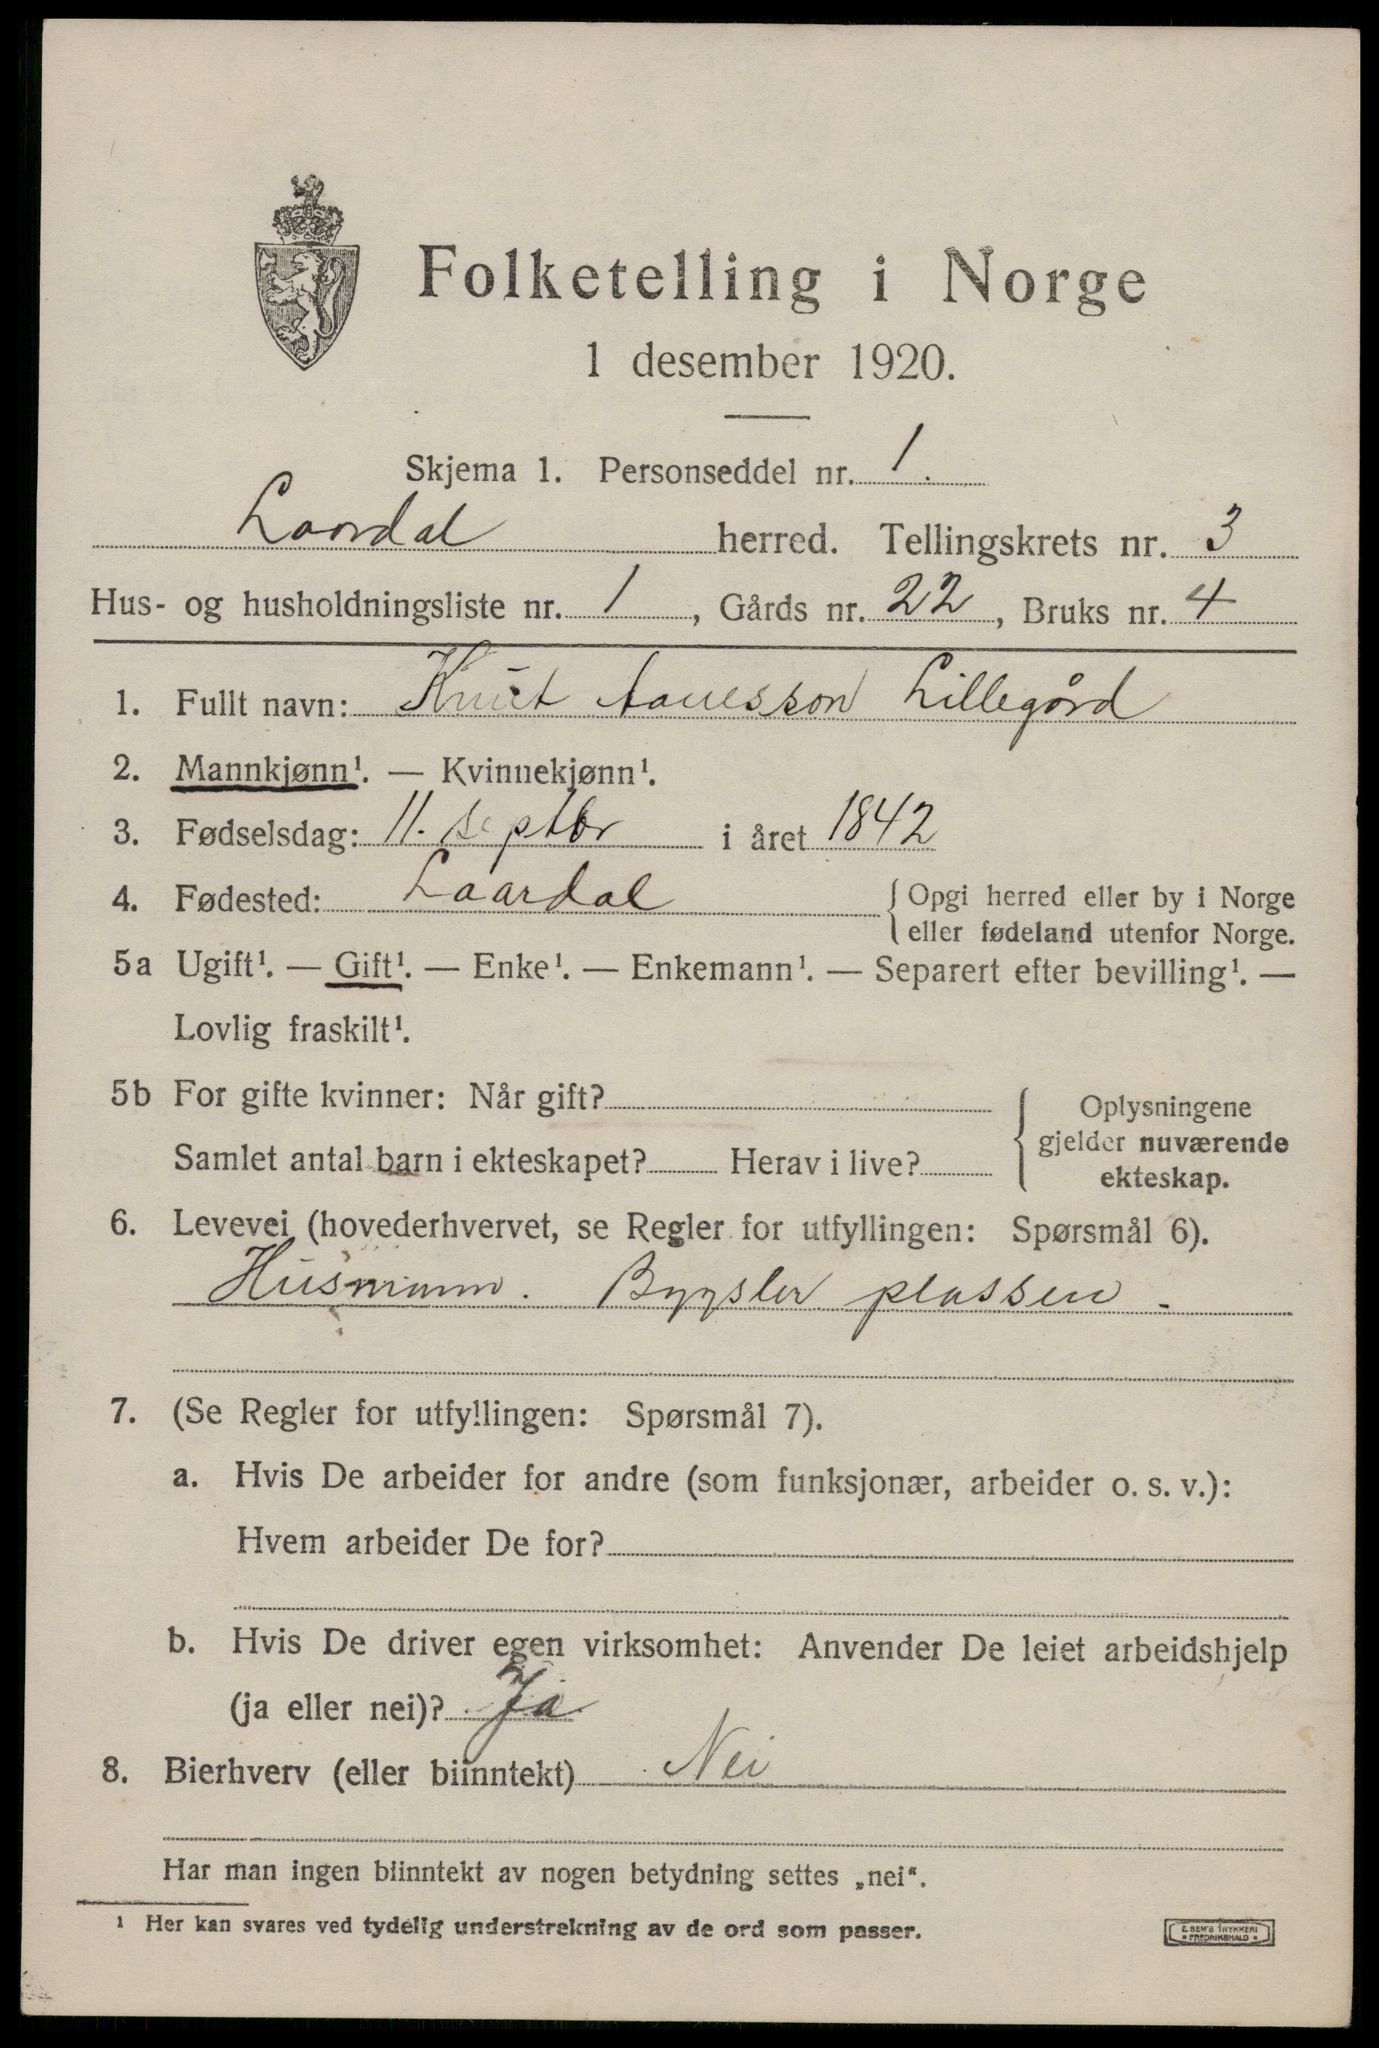 Folketelling i Norge
1 desember 1920.
Skjema 1. Personseddel nr. 1.
Laardal herred. Tellingskrets nr. 3
Hus- og husholdningsliste nr. 1, Gårds nr. 22, Bruks nr. 4
1. Fullt navn: Knut Lillegård
2. Mannkjønn¹. — Kvinnekjønn¹.
3. Fødselsdag: 11. septbr i året 1842
4. Fødested: Laardal {Opgi herred eller by i Norge
eller fødeland utenfor Norge.
5a Ugift¹. — Gift¹. — Enke¹. — Enkemann¹. — Separert efter bevilling¹. —
Lovlig fraskilt¹.
5b For gifte kvinner: Når gift?
Samlet antal barn i ekteskapet? Herav i live?
Oplysningene
gjelder nuværende
ekteskap.
6. Levevei (hovederhvervet, se Regler for utfyllingen: Spørsmål 6).
Husmann. Bygsler plassen.
7. (Se Regler for utfyllingen: Spørsmål 7).
a. Hvis De arbeider for andre (som funksjonær, arbeider o. s. v.):
Hvem arbeider De for?
b. Hvis De driver egen virksomhet: Anvender De leiet arbeidshjelp
(ja eller nei)? Ja
8. Bierhverv (eller biinntekt) Nei
Har man ingen biinntekt av nogen betydning settes „nei“.
¹ Her kan svares ved tydelig understrekning av de ord som passer.
E. SEM'S TRYKKERI
• FREDRIKSHALD •